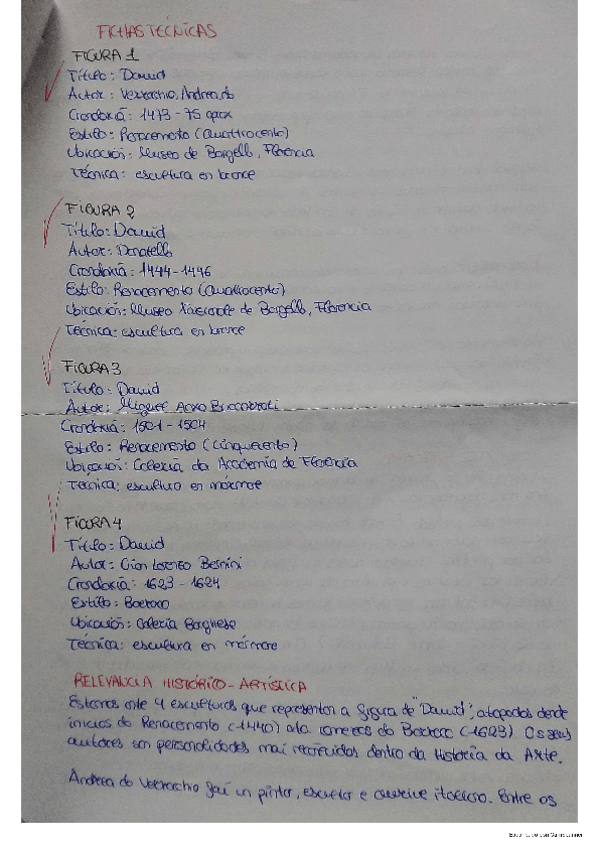 FICHAS TÉCNICAS
FIGURA 1
Título: David
Autor: Verrocchio, Andrea do
Cronoloxía: 1473-75 aprox
Estilo: Renacemento (Quattrocento)
Ubicación: Museo de Bargello, Florencia
Técnica: escultura en bronce
FIGURA 2
Título: David
Autor: Donatello
Cronoloxía: 1444-1446
Estilo: Renacemento (Quattrocento)
Ubicación: Museo Nacional de Bargello, Florencia
Técnica: escultura en bronce
FIGURA 3
Título: David
Autor: Miguel Anxo Buonarroti
Cronoloxía: 1501-1504
Estilo: Renacemento (Cinquecento)
Ubicación: Galería da Academia de Florencia
Técnica: escultura en mármore
FIGURA 4
Título: David
Autor: Gian Lorenzo Bernini
Cronoloxía: 1623-1624
Estilo: Barroco
Ubicación: Galería Borghese
Técnica: escultura en mármore
RELEVANCIA HISTÓRICO-ARTÍSTICA
Estamos ante 4 esculturas que representan a figura de "David", datadas dende
inicios do Renacemento (1440) ata comezos do Barroco (1623). Os seus
autores son personalidades moi recoñecidos dentro da Historia da Arte.
Andrea do Verrocchio foi un pintor, escultor e ourive italiano. Entre os